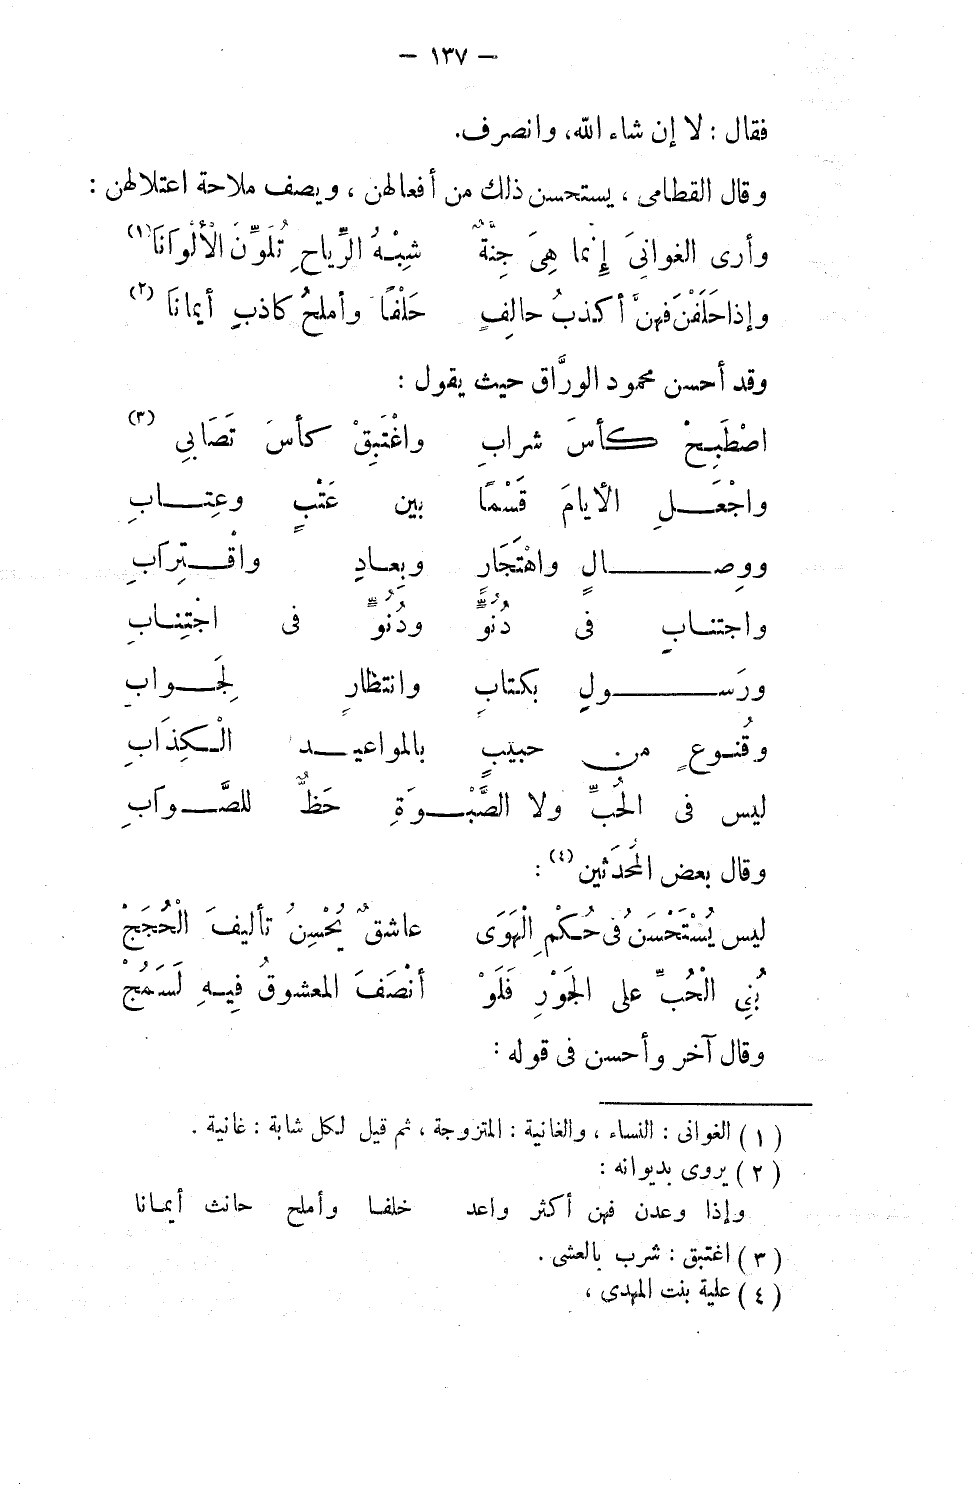 — ١٣٧ —
فقال : لا إن شاء الله، وانصرف.
وقال القطامى ، يستحسن ذلك من أفعالهن ، ويصف ملاحة اعتلالهن :
وأرى الغوانىَ إنما هِىَ جِنَّةٌ شِبْهُ الرِّياحِ تُلَوِّنَ الْأَلْوانَا (١)
وإذا حَلَفْنَ فهنَّ أكذبُ حالِفٍ حَلْفًا وأملحُ كاذبٍ أيمانَا (٢)
وقد أحسن محمود الورَّاق حيث يقول :
اصْطَبِحْ كأسَ شرابِ واغْتَبِقْ كأسَ تَصَابِى (٣)
واجْعَلِ الأيامَ قَسْمًا بين عَتْبٍ وعِتابِ
ووِصالٍ واهْتَجَارٍ وبِعادٍ واقْتِرَابِ
واجتنابٍ فى دُنُوٍّ ودُنُوٍّ فى اجْتِنابِ
ورَسولٍ بكتابٍ وانتظارٍ لِجَوابِ
وقُنوعٍ من حبيبٍ بالمواعيد الْكِذَابِ
ليس فى الحُبِّ ولا الصَّبْوَةِ حَظٌّ للصَّوابِ
وقال بعض المُحَدَثين (٤) :
ليس يُسْتَحْسَنُ فى حُكْمِ الْهَوَى عاشقٌ يُحْسِنُ تأليفَ الْحُجَجْ
بُنِى الْحُبِّ على الجَوْرِ فَلَوْ أنْصَفَ المعشوقُ فِيهِ لَسَمُجْ
وقال آخر وأحسن فى قوله :
( ١ ) الغوانى : النساء ، والغانية : المتزوجة ، ثم قيل لكل شابة : غانية .
( ٢ ) يروى بديوانه :
وإذا وعدن فهن أكثر واعد خلفا وأملح حانث أيمانا
( ٣ ) اغتبق : شرب بالعشى .
( ٤ ) علية بنت المهدى ،